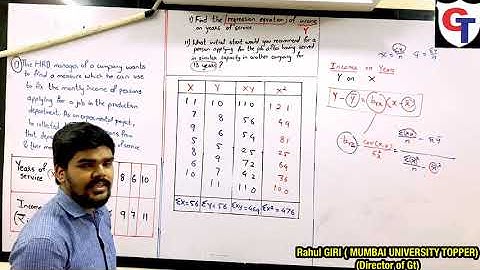 i) Find the regression equation of income
on years of service. Y
ii) What initial start would you recommend for a
person applying for the job after having served
in similar capacity in another company for
13 years?
① The HRD manager of a company wants
to find a measure which he can use
to fix the monthly income of persons
applying for a job in the production
department. As an experimental project,
Years of
service
8 6 10
Income
9 7 11
X Y XY X²
11 10 110 121
7 8 56 49
9 6 54 81
5 5 25 25
8 9 72 64
6 7 42 36
10 11 110 100
Σx=56 Σy=56 Σxy=469 Σx²=476
Income on Years
Y on X
GT
Rahul GIRI ( MUMBAI UNIVERSITY TOPPER)
(Director of Gt)